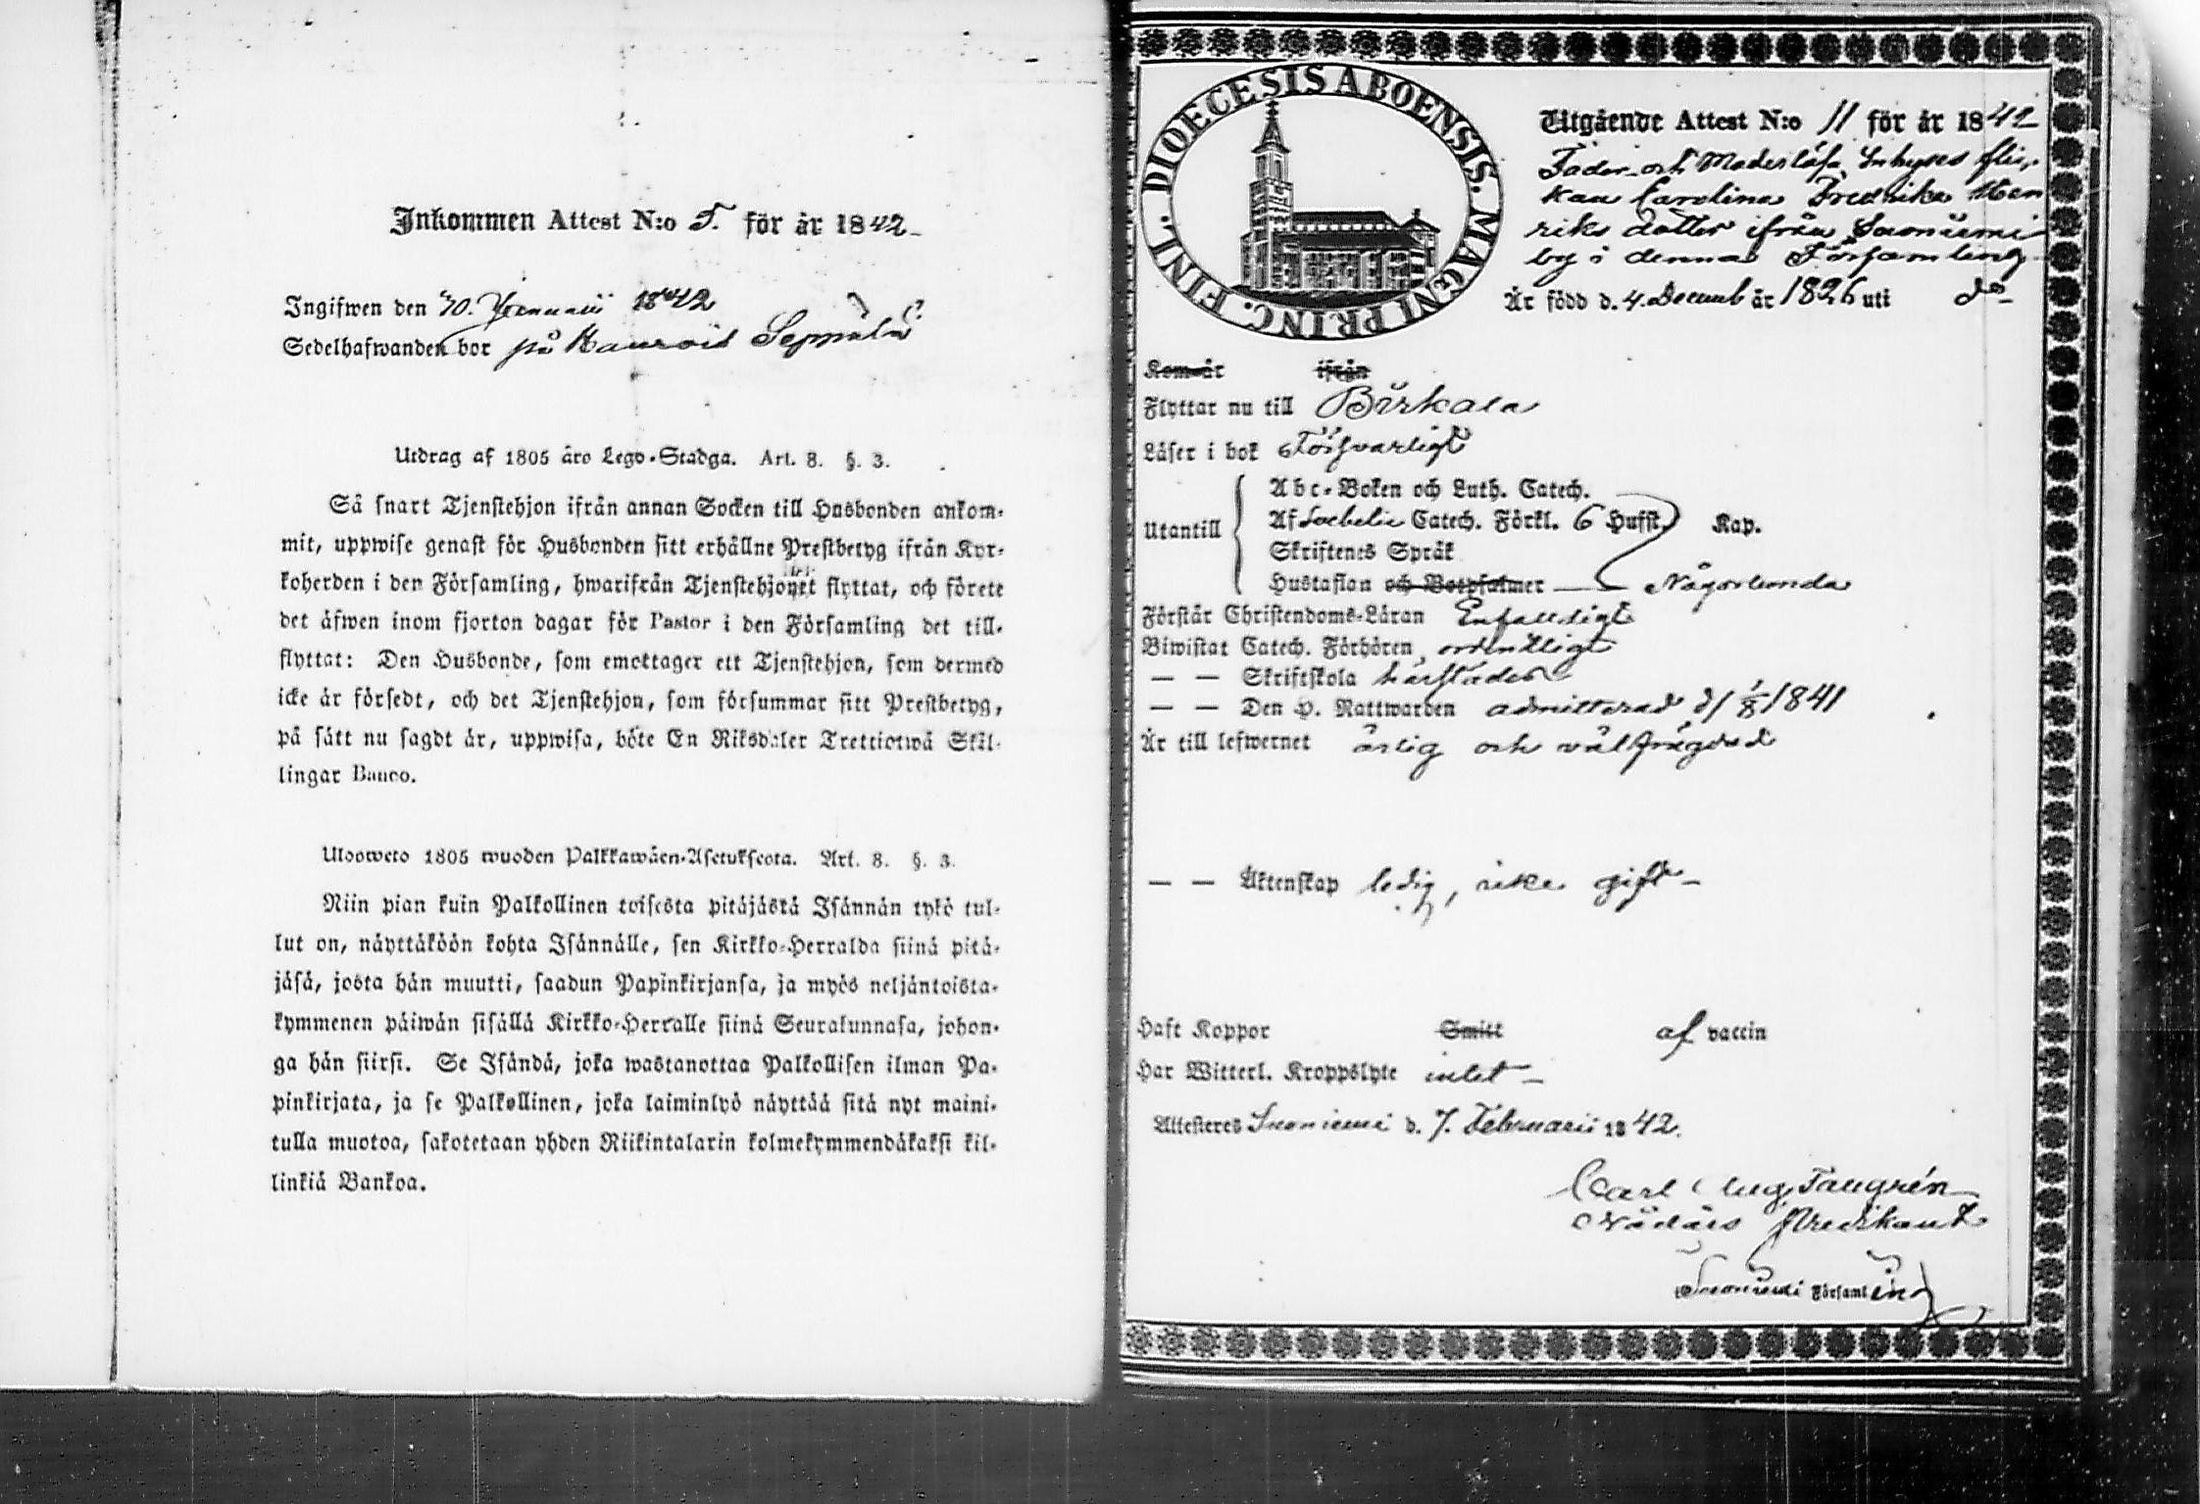 Inkommen Attest N:o 5. för år 1842
Ingifwen den 30. Januarii 1842
Sedelhafwanden bor på Seppälä
Utdrag af 1805 års Lego-Stadga. Art. 8. §. 3.
Så snart Tjenstehjon ifrån annan Socken till Husbonden ankom-
mit, uppwise genast för Husbonden sitt erhållne Prestbetyg ifrån Kyr-
koherden i den Församling, hwarifrån Tjenstehjonet flyttat, och förete
det äfwen inom fjorton dagar för Pastor i den Församling det till-
flyttat: Den Husbonde, som emottager ett Tjenstehjon, som dermed
icke är försedt, och det Tjenstehjon, som försummar sitt Prestbetyg,
på sätt nu sagdt är, uppwisa, böte En Riksdaler Trettiotwå Skil-
lingar Banco.
Ulosweto 1805 wuoden Palkkawäen-Asetuksesta. Art. 8. §. 3.
Niin pian kuin Palkollinen toisesta pitäjästä Isännän tykö tul-
lut on, näyttäköön kohta Isännälle, sen Kirkko-Herralda siinä pitä-
jäsä, josta hän muutti, saadun Papinkirjansa, ja myös neljäntoista-
kymmenen päiwän sisällä Kirkko-Herralle siinä Seurakunnasa, johon-
ga hän siirsi. Se Isändä, joka wastanottaa Palkollisen ilman Pa-
pinkirjata, ja se Palkollinen, joka laiminlyö näyttää sitä nyt maini-
tulla muotoa, sakotetaan yhden Riikintalarin kolmekymmendäkaksi kil-
linkiä Bankoa.
DIOECESIS ABOENSIS. MAGNI PRINC. FINL.
Utgående Attest N:o 11 för år 1842
Fader- och Moderlösa Inhyses flic-
kan Carolina Fredrika Hen
riks dotter ifrån Suoniemi
by i denna Församling
Är född d. 4. Decemb år 1826 uti do
Kom år ifrån
Flyttar nu till Birkala
Läser i bok Försvarligt
Utantill
Abc-Boken och Luth. Catech.
Af Catech. Förkl. 6 Hufst. Kap.
Skriftenes Språk
Hustaflan och Botpsalmer Någorlunda
Förstår Christendoms-Läran Enfaldigt
Biwistat Catech. Förhören ordentligt
— — Skriftskola härstädes
— — Den H. Nattwarden admitterad d 1/8 1841
Är till lefwernet ärlig och välfrägdad
— — Äktenskap ledig, icke gift
Haft Koppor Smitt af vaccin
Har Witterl. Kroppslyte intet
Attesteres Suoniemi d. 7. Februarii 1842.
Carl Aug. Tangrén
Nådårs Predikant
Suoniemi Församling